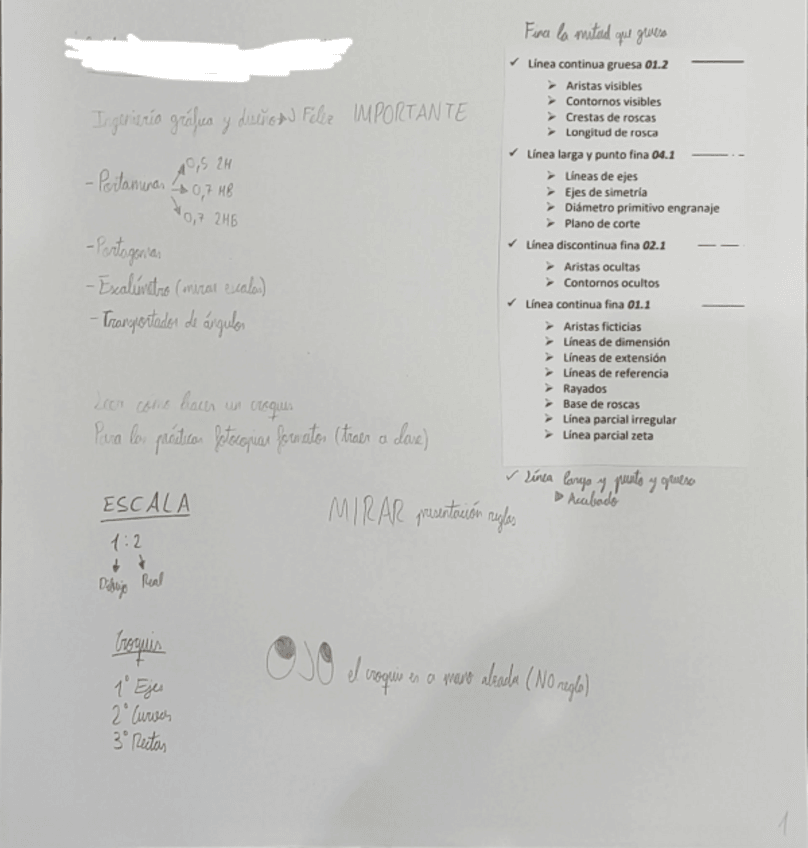 Ingeniería gráfica y diseño → Félix IMPORTANTE
- Portaminas
0,5 2H
0,7 HB
0,7 2HB
- Escalímetro (mirar escalas)
- Transportador de ángulos
Leer como hacer un croquis
Para las prácticas fotocopias formatos (traer a clase)
ESCALA
1:2
Dibujo Real
MIRAR presentación reglas
Croquis
1º Ejes
2º Curvas
3º Rectas
OJO el croquis es a mano alzada (NO regla)
Fina la mitad que gruesa
✓ Línea continua gruesa 01.2
➤ Aristas visibles
➤ Contornos visibles
➤ Crestas de roscas
➤ Longitud de rosca
✓ Línea larga y punto fina 04.1
➤ Líneas de ejes
➤ Ejes de simetría
➤ Diámetro primitivo engranaje
➤ Plano de corte
✓ Línea discontinua fina 02.1
➤ Aristas ocultas
➤ Contornos ocultos
✓ Línea continua fina 01.1
➤ Aristas ficticias
➤ Líneas de dimensión
➤ Líneas de extensión
➤ Líneas de referencia
➤ Rayados
➤ Base de roscas
➤ Línea parcial irregular
➤ Línea parcial zeta
✓ Línea larga y punto y gruesa
➤ Acabado
1